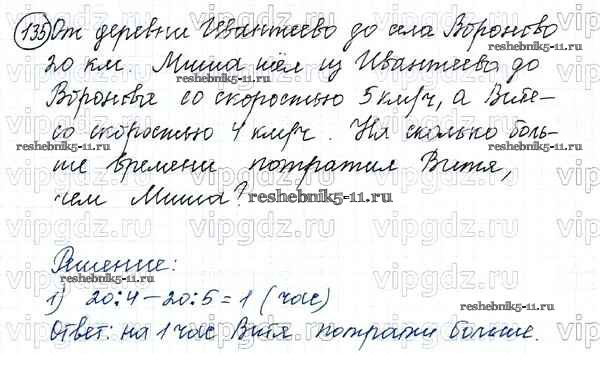 135 От деревни Ивантеево до села Вороново
20 км. Миша шёл из Ивантеево до
Воронова со скоростью 5 км/ч, а Витя-
со скоростью 4 км/ч. На сколько боль-
ше времени потратил Витя,
чем Миша?
Решение:
1) 20:4-20:5=1 (час)
Ответ: на 1 час Витя потратил больше.
reshebnik5-11.ru
vipgdz.ru